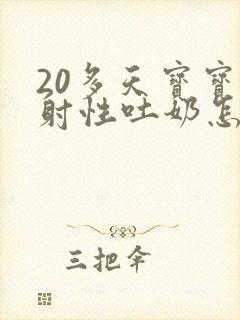 20多天宝宝
射性吐奶怎
三把伞